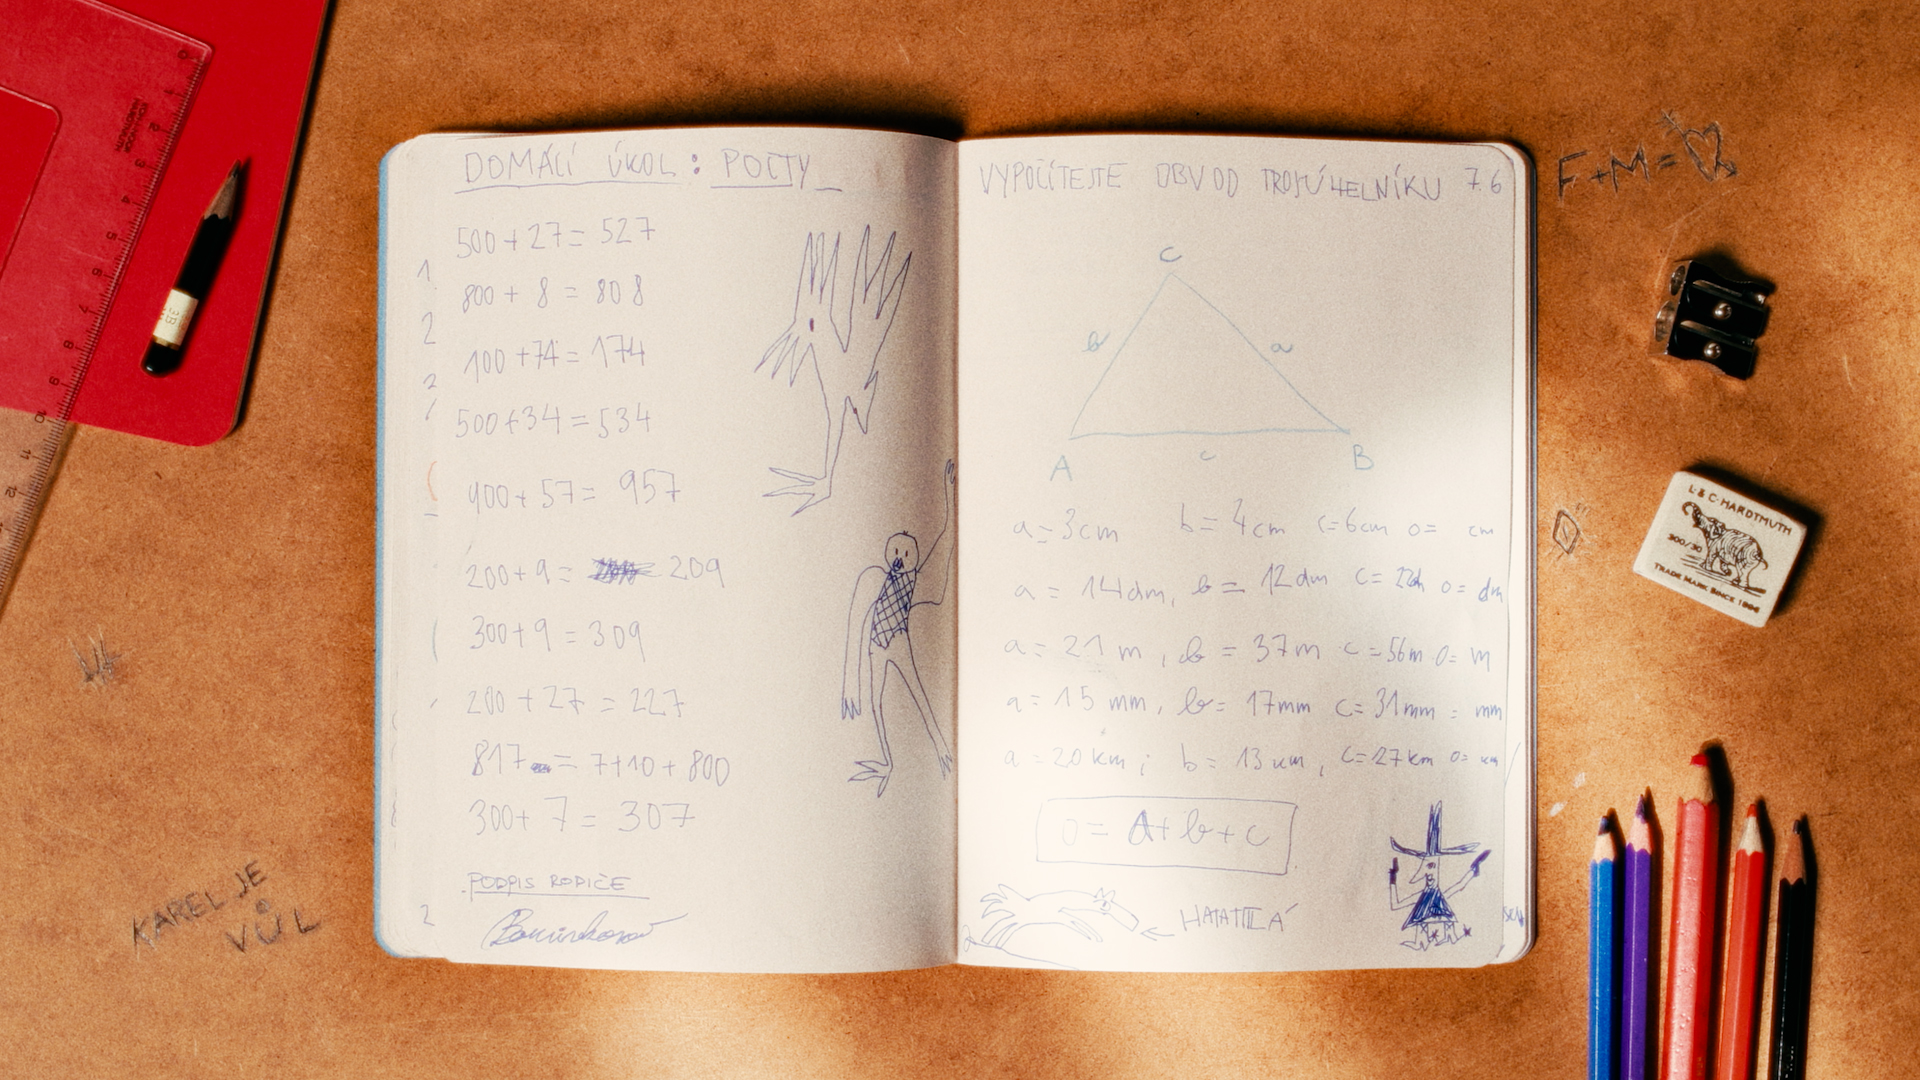 DOMÁCÍ ÚKOL: POČTY
500 + 27 = 527
800 + 8 = 808
100 + 74 = 174
500 + 34 = 534
900 + 57 = 957
200 + 9 = 209
300 + 9 = 309
200 + 27 = 227
817 = 7+10+800
300 + 7 = 307
PODPIS RODIČE
VYPOČÍTEJTE OBVOD TROJÚHELNÍKU 7.6
C
b a
A c B
a = 3cm b = 4cm c = 6cm o = cm
a = 14dm, b = 12dm c = 22d o = dm
a = 21 m, b = 37m c = 56m o = m
a = 15 mm, b = 17mm c = 31mm = mm
a = 20 km; b = 13 km, c = 27km o = km
o = A + b + c
HATATITLÁ
F+M=
KAREL JE
VŮL
3B
L. & C. HARDTMUTH
300/30
TRADE MARK SINCE 1896